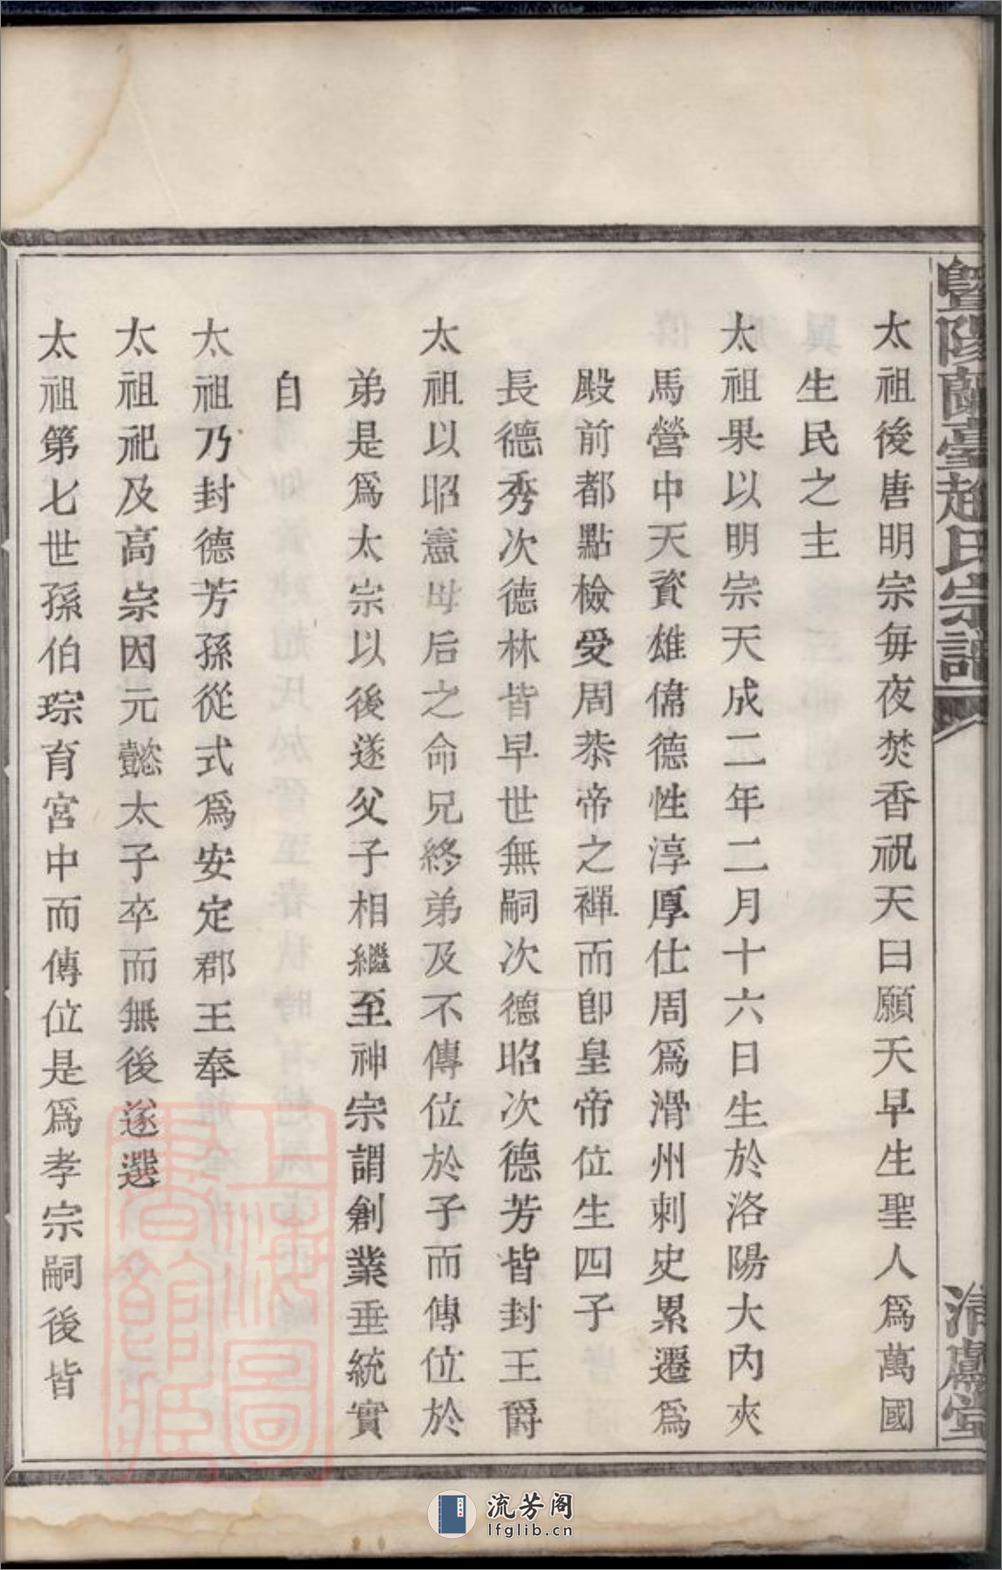 暨陽蘭臺趙氏宗譜
清獻堂
太祖後唐明宗每夜焚香祝天曰願天早生聖人爲萬國
生民之主
太祖果以明宗天成二年二月十六日生於洛陽大內夾
馬營中天資雄偉德性淳厚仕周爲滑州刺史累遷爲
殿前都點檢受周恭帝之禪而卽皇帝位生四子
長德秀次德林皆早世無嗣次德昭次德芳皆封王爵
太祖以昭憲母后之命兄終弟及不傳位於子而傳位於
弟是爲太宗以後遂父子相繼至神宗謂創業垂統實
自
太祖乃封德芳孫從式爲安定郡王奉
太祖祀及高宗因元懿太子卒而無後遂選
太祖第七世孫伯琮育宮中而傳位是爲孝宗嗣後皆
上海圖書館藏
流芳阁
lfglib.cn